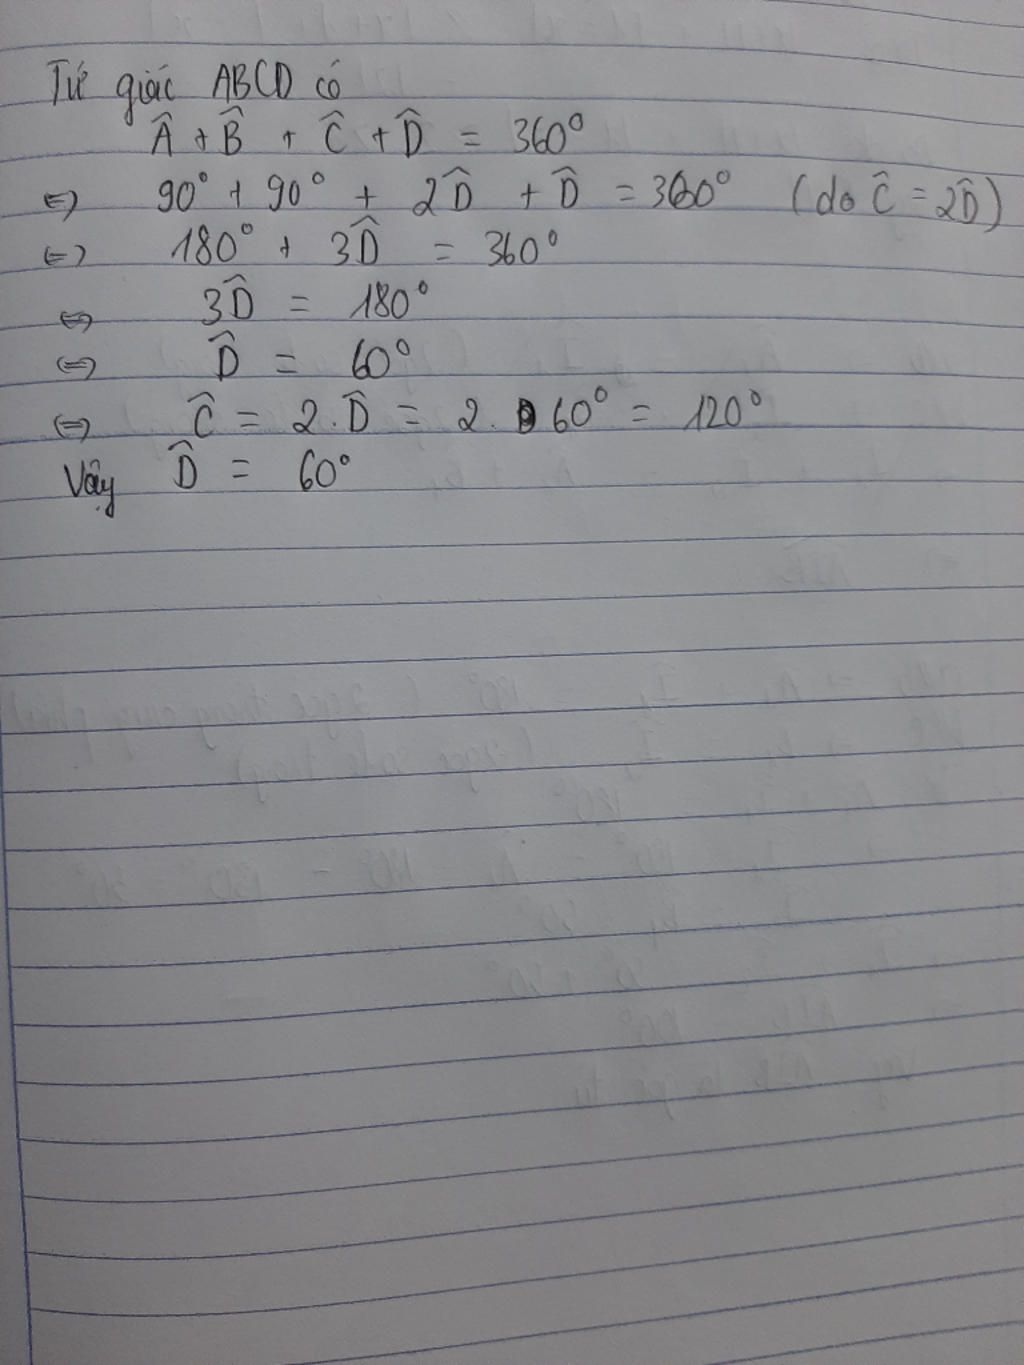 Tứ giác ABCD có
Â + B̂ + Ĉ + D̂ = 360°
⇔ 90° + 90° + 2D̂ + D̂ = 360° (do Ĉ = 2D̂)
⇔ 180° + 3D̂ = 360°
⇔ 3D̂ = 180°
⇔ D̂ = 60°
⇔ Ĉ = 2.D̂ = 2. 60° = 120°
Vậy D̂ = 60°